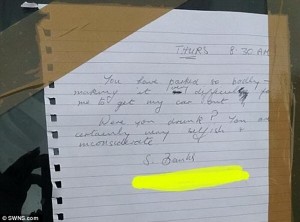 THURS 8.30 AM
You have parked so badly -
making it very difficult for
me to get my car out
Were you drunk? You are
certainly very selfish &
inconsiderate
S. Banks
© SWNS.com